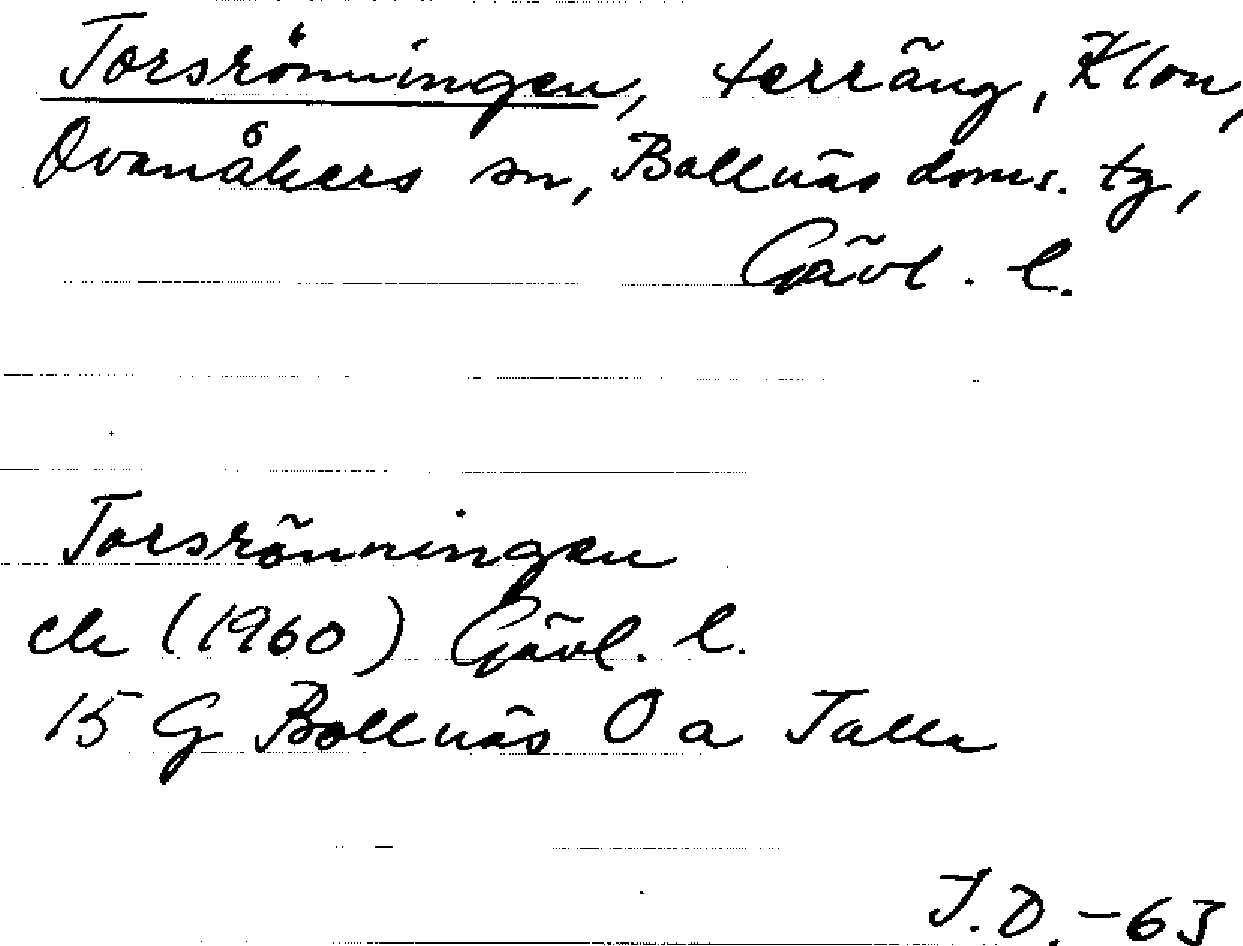 Torsrönningen, terräng, Klon,
Ovanåkers sn, Bollnäs doms. tg,
Gävl. l.
Torsrönningen
ek (1960) Gävl. l.
15 G Bollnäs O a Talla
J.D. -63